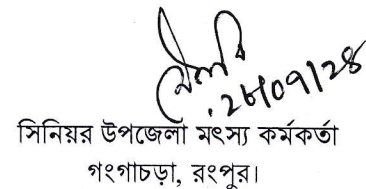 সিনিয়র উপজেলা মৎস্য কর্মকর্তা
গংগাচড়া, রংপুর।